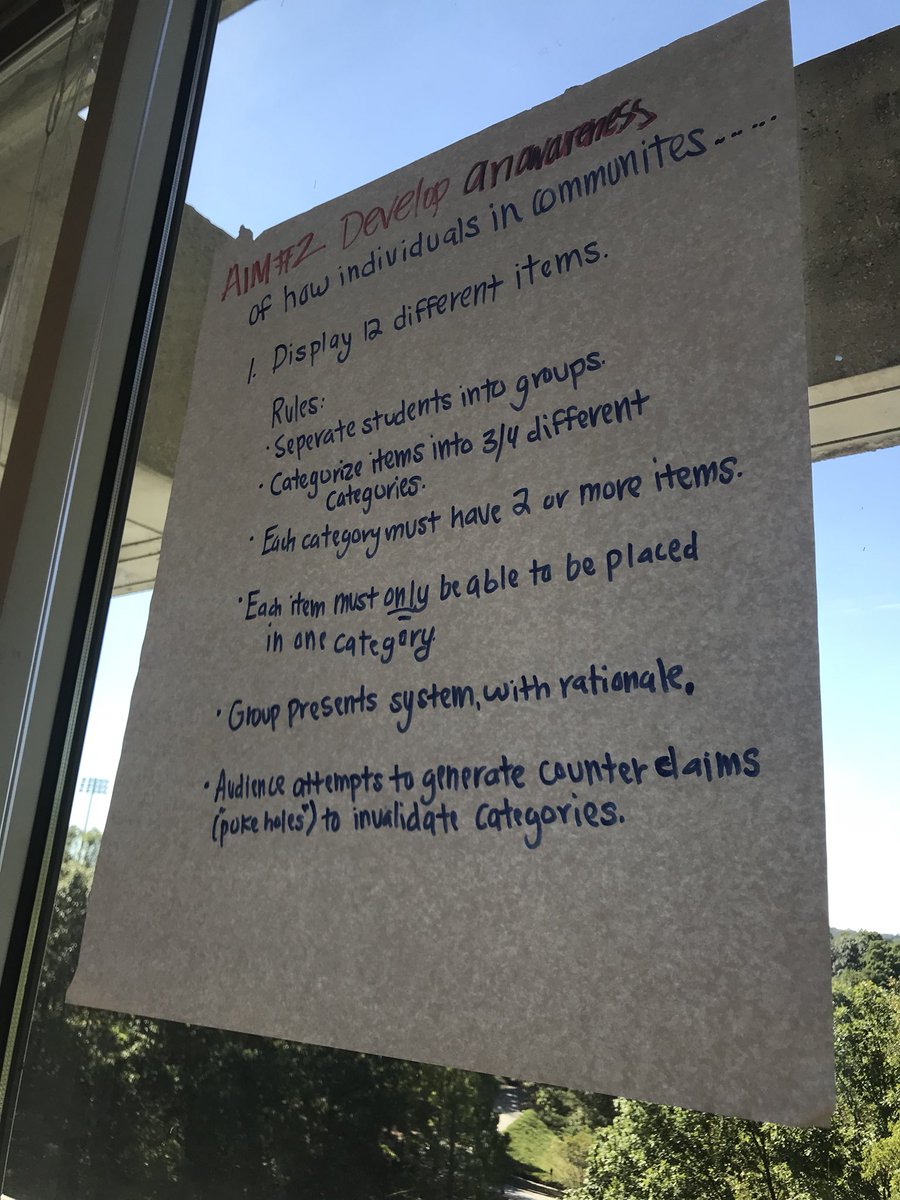 AIM#2 Develop an awareness
of how individuals in communites.....
1. Display 12 different items.
Rules:
· Seperate students into groups.
· Categorize items into 3/4 different
categories.
· Each category must have 2 or more items.
· Each item must only be able to be placed
in one category.
· Group presents system, with rationale.
· Audience attempts to generate counter claims
("poke holes") to invalidate categories.